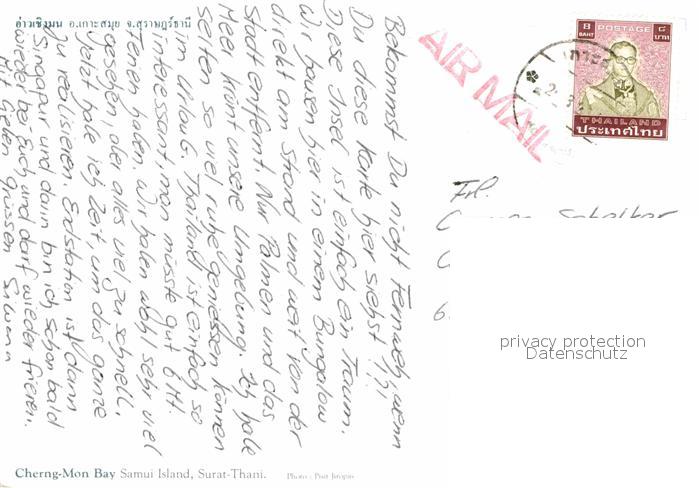 อ่าวเชิงมน อ.เกาะสมุย จ.สุราษฎร์ธานี
Bekommst Du nicht Fernweh, wenn
Du diese Karte hier siehst?!
Diese Insel ist einfach ein Traum.
Wir hausen hier in einem Bungalow
direkt am Strand und weit von der
Stadt entfernt. Nur Palmen und das
Meer krönt unsere Umgebung. Ich habe
selten so viel ruhe geniessen können
im Urlaub. Thailand ist einfach so
interessant, man müsste gut 6 Mt.
Ferien haben. Wir haben wohl sehr viel
gesehen, aber alles viel zu schnell.
Jetzt habe ich Zeit, um das ganze
zu realisieren. Endstation ist dann
Singapur und dann bin ich schon bald
wieder bei Euch und darf wieder frieren.
Mit lieben Grüssen
AIR MAIL
8
BAHT
POSTAGE
๘
บาท
THAILAND
ประเทศไทย
Frl.
6
privacy protection
Datenschutz
Cherng-Mon Bay Samui Island, Surat-Thani.
Photo : Pisit Jiropas